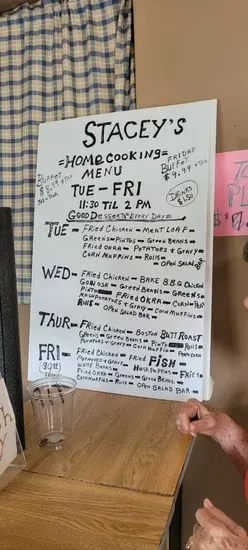 STACEY'S
=HOME COOKING=
MENU
BUFFET
$8.99 +TAX
TUE-THUR
FRIDAY
BUFFET
$9.99 +TAX
TUE - FRI
11:30 TIL 2 PM
DRINKS
$1.50
GOOD DESSERTS EVERY DAY=
TUE - FRIED CHICKEN - MEAT LOAF -
GREENS - PINTOS - GREEN BEANS -
FRIED OKRA - POTATOES + GRAVY
CORN MUFFINS - ROLLS -
OPEN SALAD BAR
WED - FRIED CHICKEN - BAKE BBQ CHICKEN
GREEN BEANS - GREENS
PINTO - FRIED OKRA - CORN
MASHPOTATOES + GRAVY - CORN MUFFINS
ROLLS - OPEN SALAD BAR
THUR - FRIED CHICKEN - BOSTON BUTT ROAST
GREENS - GREEN BEANS - PINTO - ROLLS
POTATOES + GRAVY - CORN MUFFIN
FRI - FRIED CHICKEN - FRIED FISH -
POTATOES + GRAVY - HUSH PUPPIES - FRIES
WHITE BEANS
FRIED OKRA - GREENS - GREEN BEANS -
CORN MUFFINS - ROLLS - OPEN SALAD BAR -